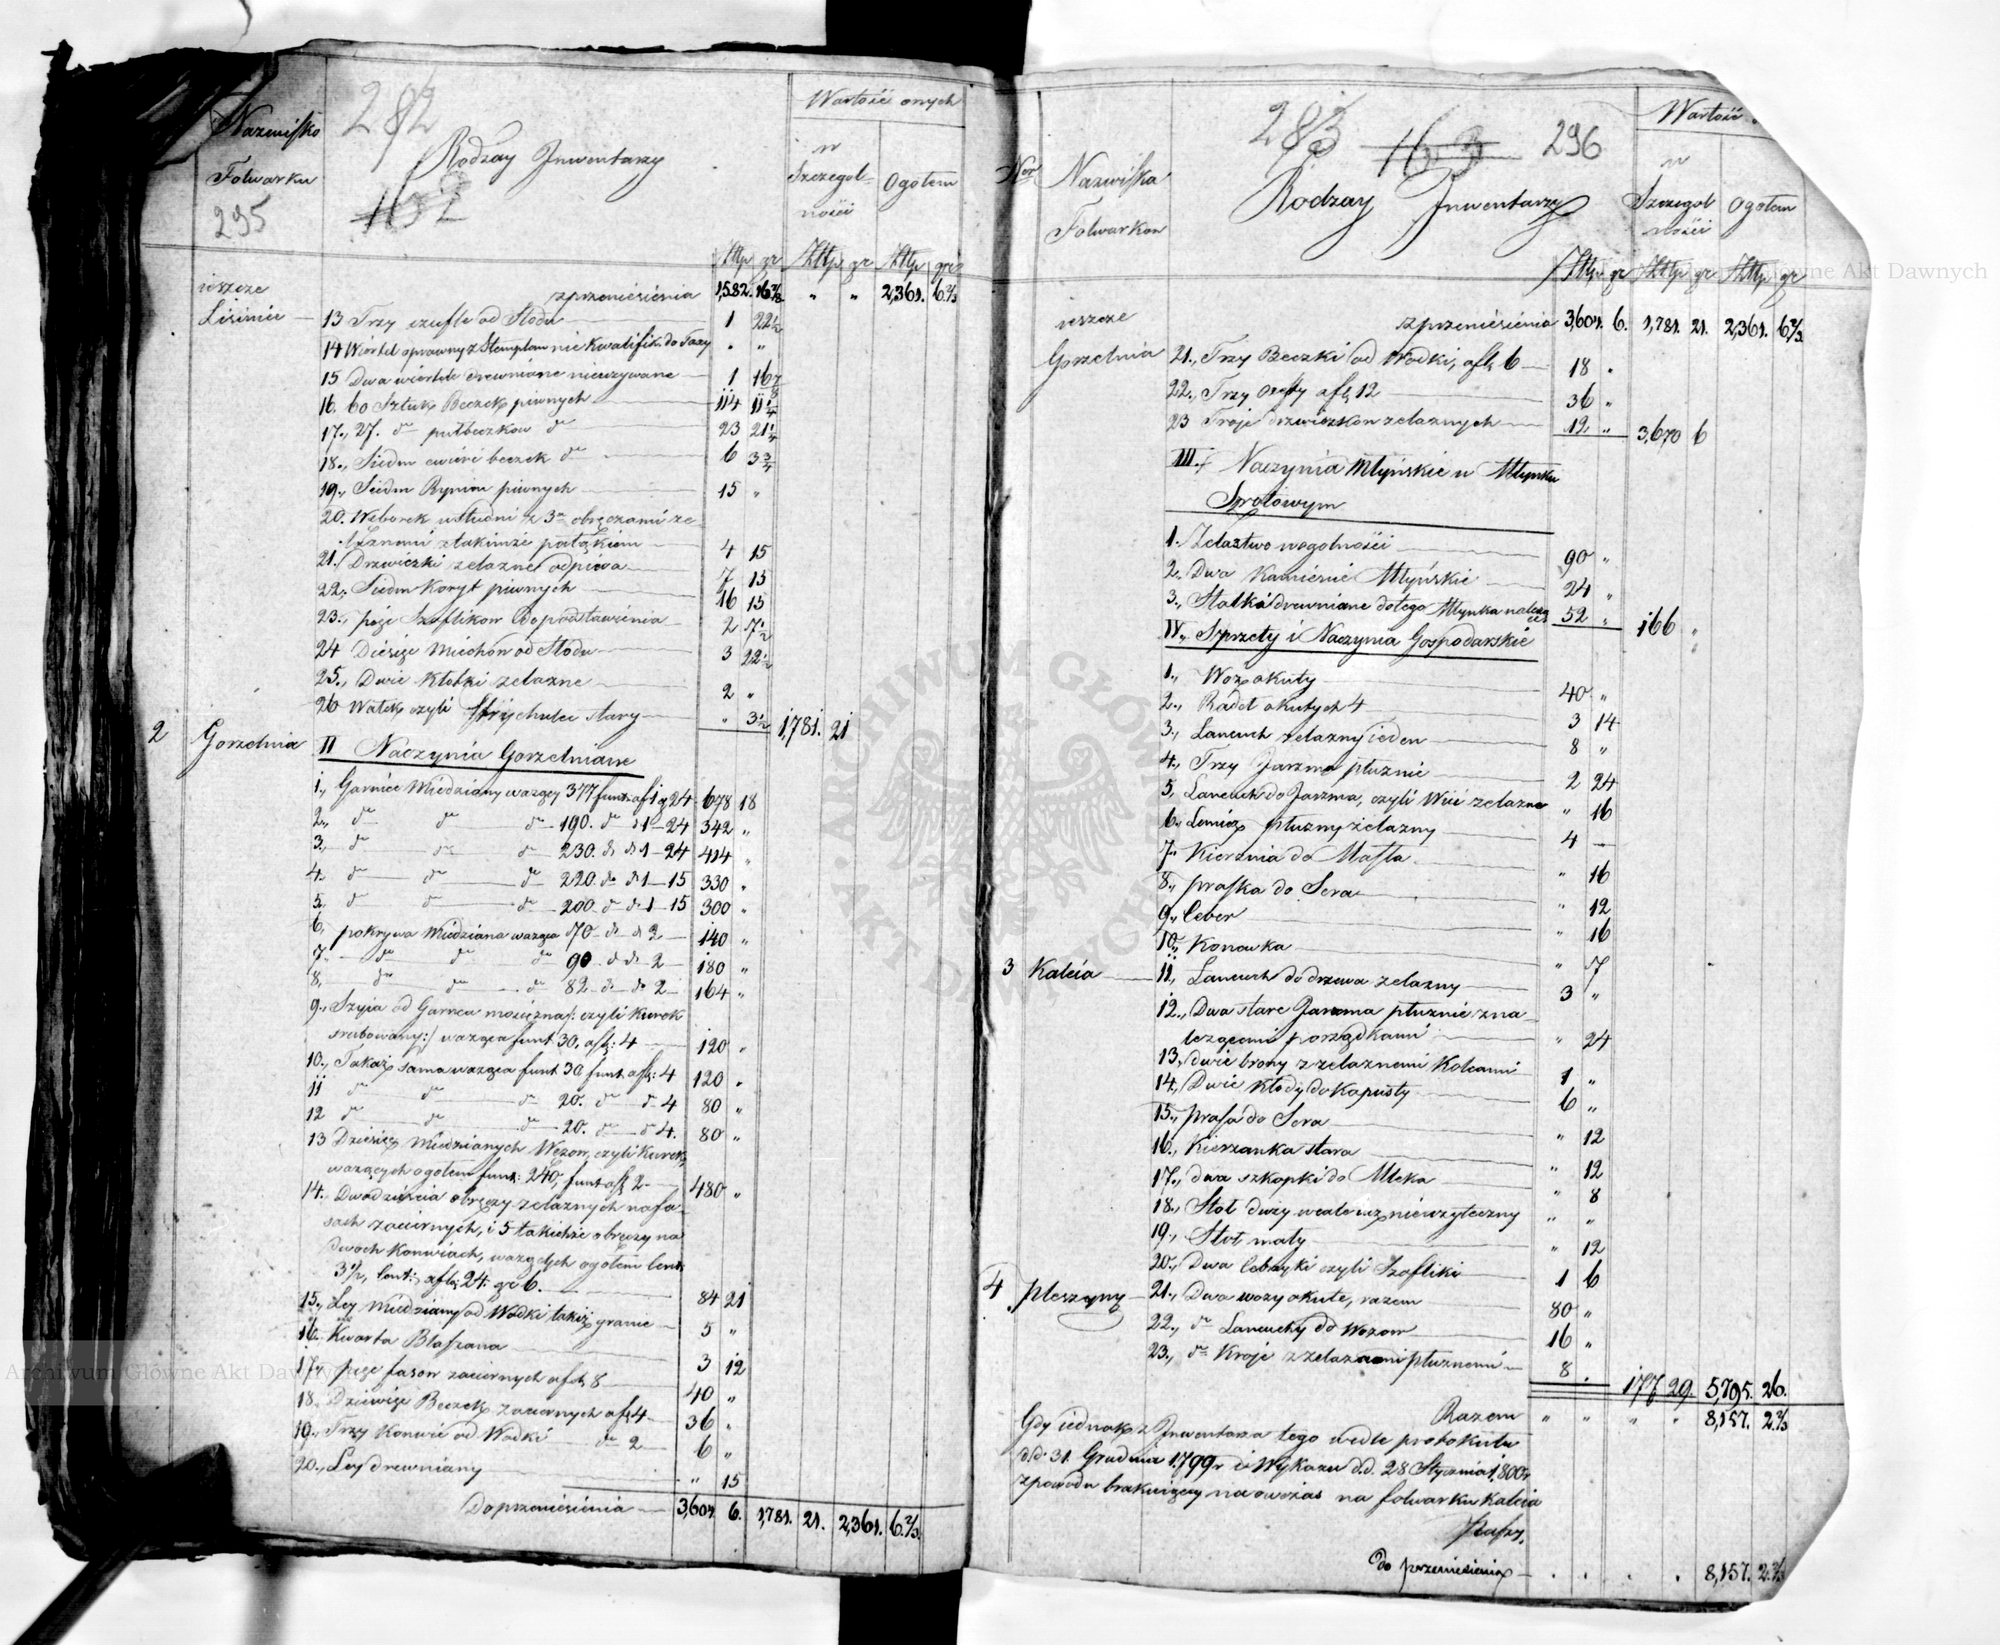 282
Nazwisko
Folwarku
295
Rodzay Inwentarzy
162
Wartość onych
w
Szczegol-
ności
Ogołem
Złtp gr Złtp gr Złtp gr
ieszcze
zprzeniesienia 1,582. 16 7/8 " " 2,361. 6 2/3
13 Trzy szufle od Słodu 1 22 1/2
14 Wiertel sprawny z Stemplem nie kwalifik. do Taxy " "
15 Dwa wiertele drewniane nieużywane 1 16 7/8
16. 60 Sztuk Beczek piwnych 114 11 1/4
17., 27. do pułbeczkow do 23 21 1/4
18., Siedm cwierć beczek do 6 3 3/4
19., Siedm Rynien piwnych 15 "
20. Weborek u Studni z 3ma obręczami że-
laznemi z takimże pałąkiem 4 15
21. Drzwiczki żelazne od piwa 7 15
22., Siedm Koryt piwnych 16 15
23., pięć Szaflikow do podstawienia 2 7 1/2
24 Diesięć Miechów od Słodu 3 22 1/2
25., Dwie Kłotki żelazne 2 "
26 Wałek czyli Strychulec stary " 3 1/2 1,781. 21
2 Gorzelnia II Naczynia Gorzelniane
1., Garniec Miedziany ważący 377 funt. a f 1 g 24 678 18
2., do do do 190. do d 1–24 342 "
3., do do do 230. do d 1–24 414 "
4. do do do 220. do d 1–15 330 "
5, do do do 200. do d 1–15 300 "
6, pokrywa Miedziana ważąca 70 do d 2 140 "
7. do do do 90 do d 2 180 "
8, do do do 82 do do 2 164 "
9., Szyia od Garnca mosiężna /: czyli kurek
srubowany :/ ważąca funt 30. a f: 4 120 "
10., Takaż sama ważąca funt 30 funt a f: 4 120 "
11 do do do 20. do d 4 80 "
12 do do do 20. do d 4. 80 "
13 Dziesięć Miedzianych Wężow, czyli Kurek,
ważących ogołem funt: 240, funt a f 2 480 "
14. Dwadzieścia obręczy żelaznych na fa-
sach zaciernych, i 5 takichże obręczy na
dwoch Konwiach, ważących ogołem Cent:
3 1/2, Cent: a f 24. gr 6. 84 21
15., Ley Miedziany od Wodki takiż granie 5 "
16. Kwarta Blaszana 3 12
17., pięć fasow zaciernych a f 8 40 "
18., Dziewięć Beczek zaciernych a f 4 36 "
19., Trzy Konwie od Wodki do 2 6 "
20., Ley drewniany " 15
Do przeniesienia 3,601. 6. 1,781. 21. 2,361. 6 2/3.
283 163 296
Nro Nazwiska
Folwarkow
Rodzay Inwentarzy
Wartość
w
Szczegol
ności
Ogołem
Złtp gr Złtp gr Złtp gr
ieszcze
Gorzelnia
zprzeniesienia 3,601. 6. 1,781. 21. 2,361. 6 2/3.
21., Trzy Beczki od Wodki, a f 6 18 "
22., Trzy a f 12 36 "
23 Troje drzwiczkow żelaznych 12. " 3,670 6
III. Naczynia Młyńskie w Młynku
Srotowym
1. Żelaztwo wogolności 90 "
2., Dwa Kamienie Młyńskie 24 "
3., Statki drewniane do tego Młynka należą
ce 52 " 166 "
IV., Sprzęty i Naczynia Gospodarskie
1., Woz okuty 40 "
2., Radeł okutych 4 3 14
3., Lancuch żelazny ieden 8 "
4., Trzy Jarzma płuznie 2 24
5, Lancuch do Jarzma, czyli Wić żelazna " 16
6., Lemiesz płuzny żelazny 4 —
7., Kierznia do Masła " 16
8., praska do Sera " 12
9., Ceber " 16
10., Konewka " 7
3 Kaleia 11., Lancuch do drzewa żelazny 3 "
12., Dwa stare Jarzma płuznie zna-
leżącemi porządkami " 24
13, dwie brony z żelaznemi Kolcami 1 "
14., Dwie Kłody do Kapusty 6 "
15., prasa do Sera " 12
16., Kierzanka stara " 12
17., dwa szkopki do Mleka " 8
18., Stoł duży wcale iuż nieużyteczny " "
19., Stoł mały " 12
20., Dwa Cebrzyki czyli Szafliki 1 6
4 Pleszyny 21., Dwa wozy okute, razem 80 "
22., do Lancuchy do Wozow 16 "
23., do Kroje z żelazami płuznemi 8 . 177 29. 5,795. 26.
Razem " " " " 8,157. 2 2/3
Gdy iednak z Inwentarza tego wedle protokułu
d.d. 31. Grudnia 1799r i Wykazu d.d. 28 Stycznia 1,800r
zpowodu brakuiącey na owczas na folwarku Kaleia
Paszy,
Do przeniesienia . . . . 8,157. 2 2/3
ARCHIWUM GŁÓWNE AKT DAWNYCH
Archiwum Główne Akt Dawnych